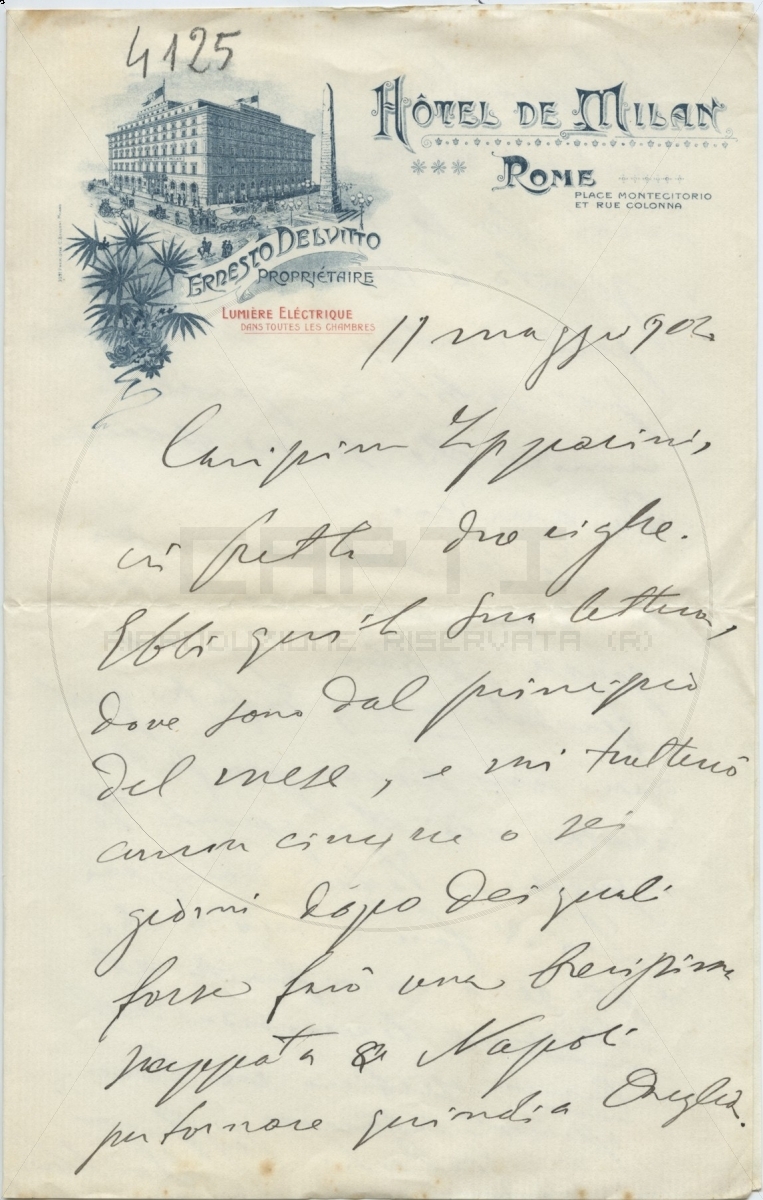 4125
HÔTEL DE MILAN
ROME
PLACE MONTECITORIO
ET RUE COLONNA
ERNESTO DELVITTO
PROPRIÉTAIRE
LUMIÈRE ELÉCTRIQUE
DANS TOUTES LES CHAMBRES
11 maggio 902
Carissimo Lipparini,
in fretta due righe.
Ebbi qui la sua lettera,
CAPTI
RIPRODUZIONE RISERVATA (R)
dove sono dal principio
del mese, e mi tratterrò
ancora cinque o sei
giorni dopo dei quali
forse farò una brevissima
scappata a Napoli
per tornare quindi a Oneglia.